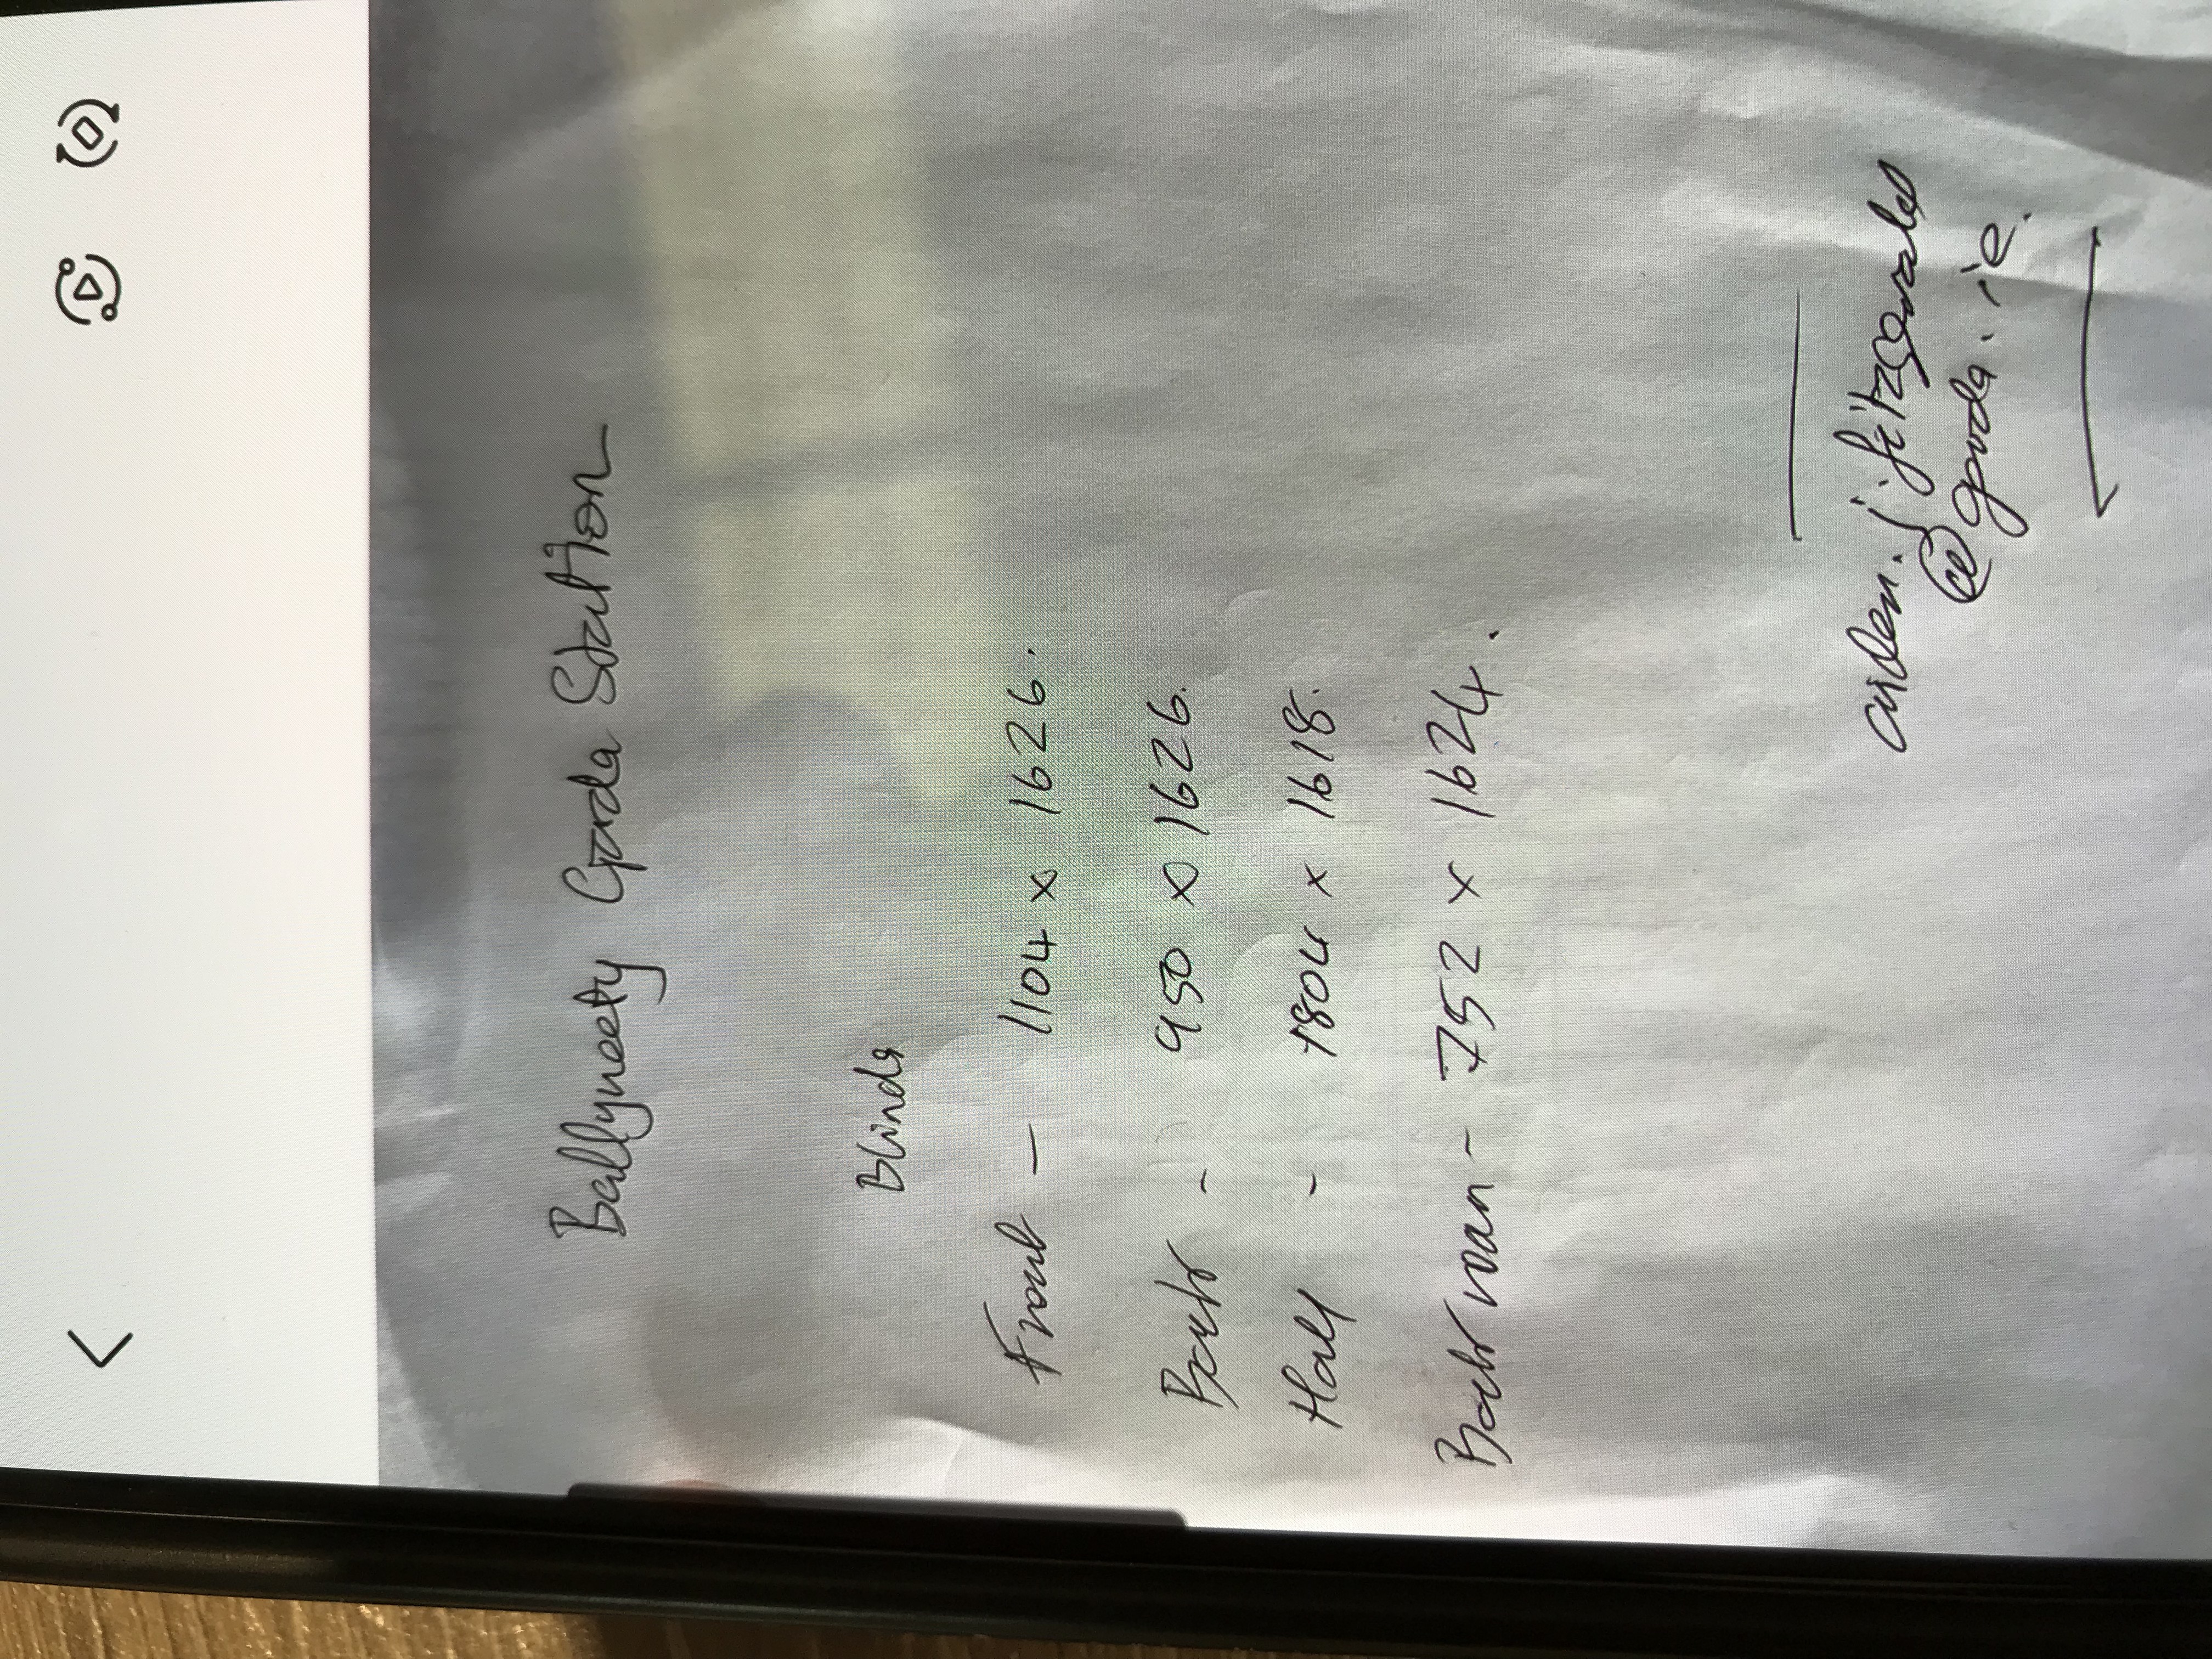 Ballyneety Garda Station
Blinds
Front - 1104 x 1626.
Back - 950 x 1626.
Hall - 1804 x 1618.
Back room - 752 x 1624.
aiden.j.fitzgerald
@garda.ie.